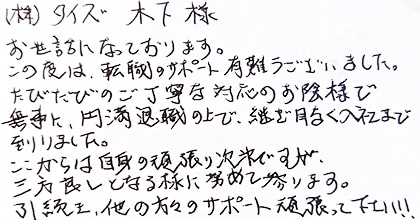 (株) タイズ 木下 様
お世話になっております。
この度は、転職のサポート有難うございました。
たびたびのご丁寧な対応のお陰様で
無事に、円満退職の上で、継ぎ目なく入社まで
到りました。
ここからは自身の頑張り次第ですが、
三方良しとなる様に努めて参ります。
引続き、他の方々のサポート頑張って下さい!!!